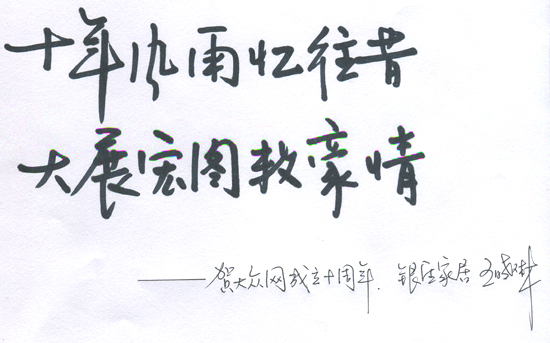 十年风雨忆往昔
大展宏图敘豪情
——贺大众网成立十周年.银座家居